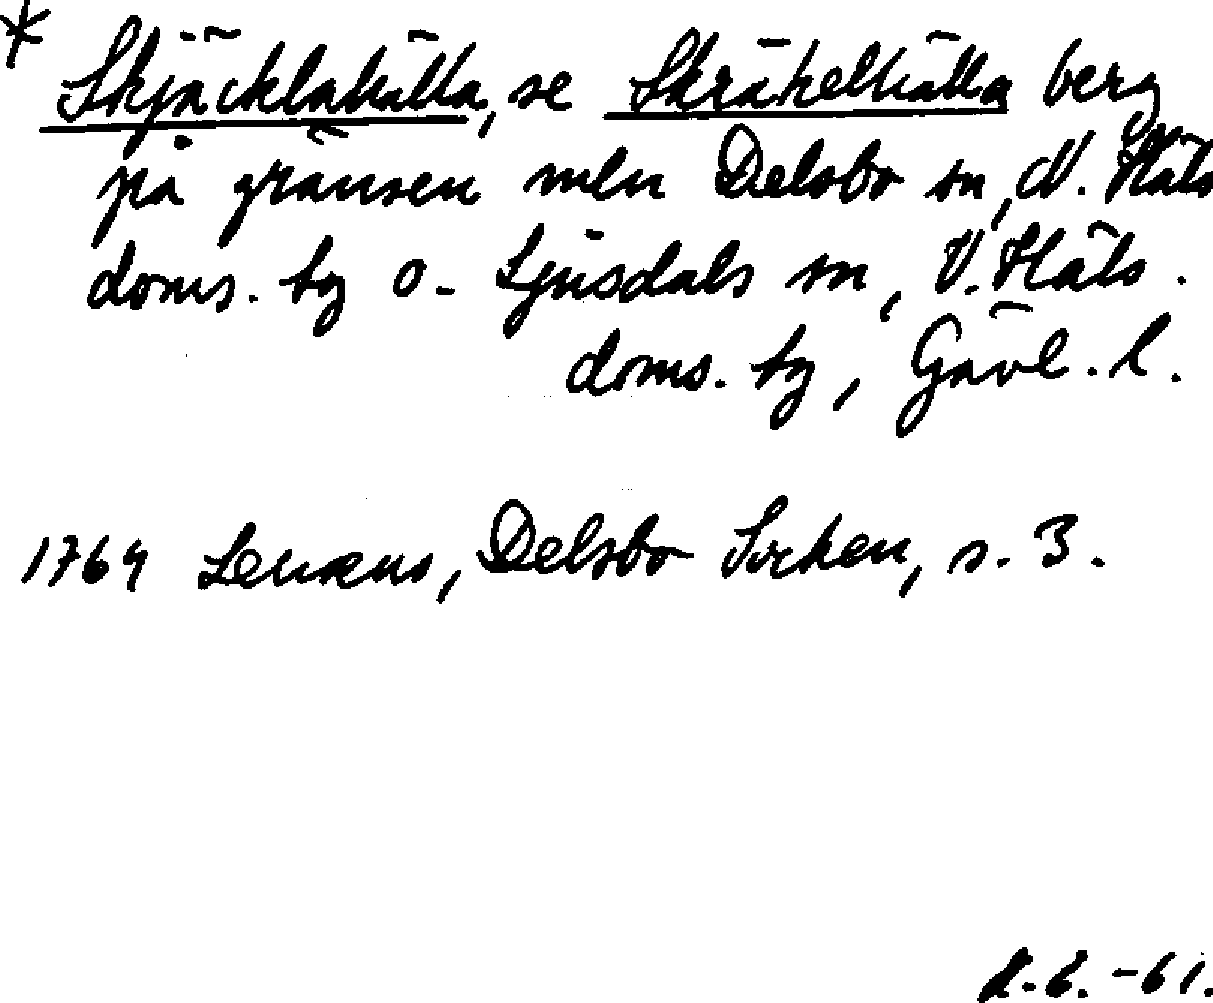 * Skjäcklahälla, se Skräkelhälla berg
på gränsen mln Delsbo sn, N. Häls
doms. tg o. Ljusdals sn, V. Häls.
doms. tg, Gävl. l.
1764 Lenæus, Delsbo Socken, s. 3.
-61.